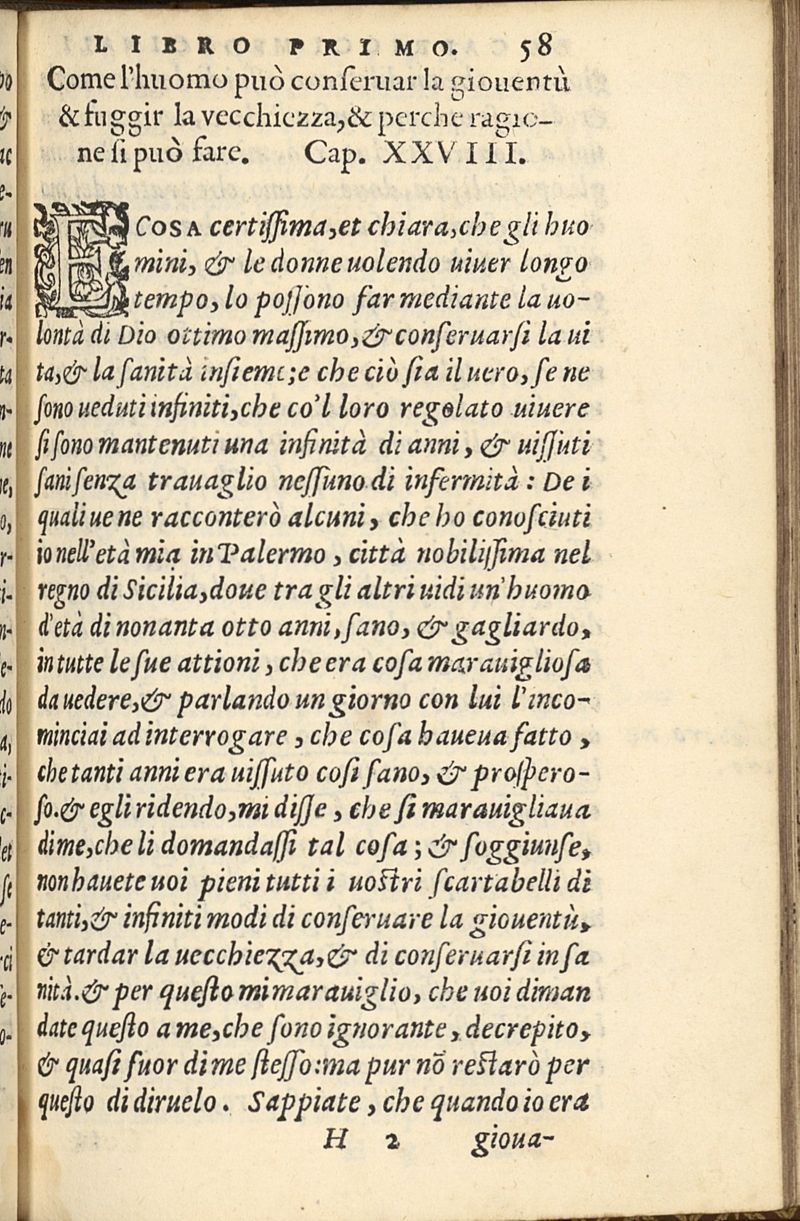 LIBRO PRIMO. 58
Come l'huomo può conſeruar la giouentù
& fuggir la vecchiezza, & perche ragio-
ne ſi può fare. Cap. XXVIII.
E COSA certiſſima, et chiara, che gli huo
mini, & le donne uolendo uiuer longo
tempo, lo poſſono far mediante la uo-
lontà di Dio ottimo maſſimo, & conſeruarſi la ui
ta, & la ſanità inſieme; e che ciò ſia il uero, ſe ne
ſono ueduti infiniti, che co'l loro regolato uiuere
ſi ſono mantenuti una infinità di anni, & uiſſuti
ſani ſenza trauaglio neſſuno di infermità: De i
quali ue ne racconterò alcuni, che ho conoſciuti
io nell'età mia in Palermo, città nobiliſſima nel
regno di Sicilia, doue tra gli altri uidi un'huomo
d'età di nonanta otto anni, ſano, & gagliardo,
in tutte le ſue attioni, che era coſa marauiglioſa
da uedere, & parlando un giorno con lui l'inco-
minciai ad interrogare, che coſa haueua fatto,
che tanti anni era uiſſuto coſi ſano, & proſpero-
ſo. & egli ridendo, mi diſſe, che ſi marauigliaua
di me, che li domandaſſi tal coſa; & ſoggiunſe,
non hauete uoi pieni tutti i uoſtri ſcartabelli di
tanti, & infiniti modi di conſeruare la giouentù,
& tardar la uecchiezza, & di conſeruarſi in ſa
nità. & per queſto mi marauiglio, che uoi diman
date queſto a me, che ſono ignorante, decrepito,
& quaſi fuor di me ſteſſo: ma pur nõ reſtarò per
queſto di diruelo. Sappiate, che quando io era
H 2 gioua-